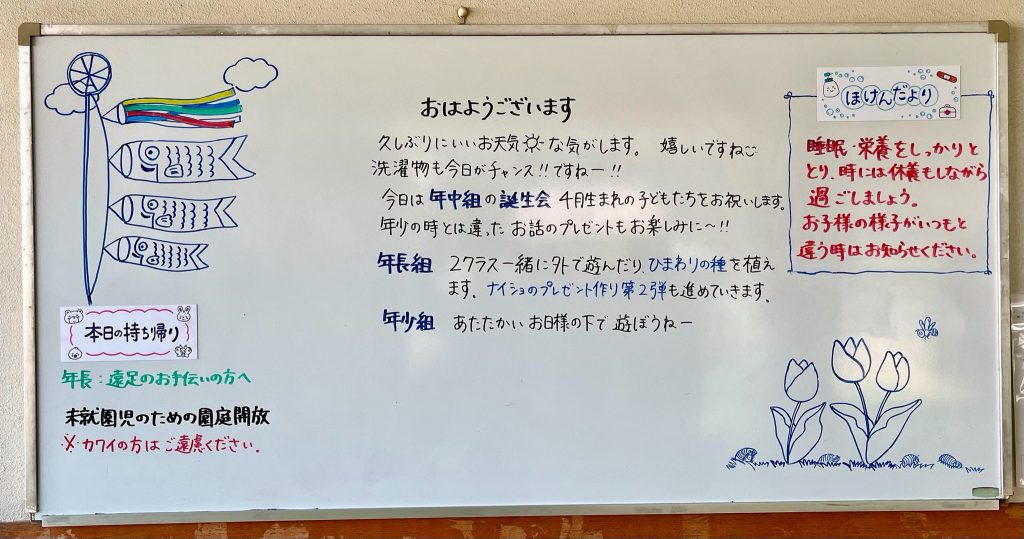 おはようございます
久しぶりにいいお天気な気がします。 嬉しいですね
洗濯物も今日がチャンス!!ですねー!!
今日は 年中組の誕生会 4月生まれの子どもたちをお祝いします。
年少の時とは違った お話のプレゼントもお楽しみに〜!!
年長組 2クラス一緒に外で遊んだり、ひまわりの種を植え
ます。 ナイショのプレゼント作り第2弾も進めていきます。
年少組 あたたかい お日様の下で 遊ぼうねー
本日の持ち帰り
年長:遠足のお手伝いの方へ
未就園児のための園庭開放
※カワイの方はご遠慮ください。
ほけんだより
睡眠・栄養をしっかりと
とり、時には休養もしながら
過ごしましょう。
お子様の様子がいつもと
違う時はお知らせください。